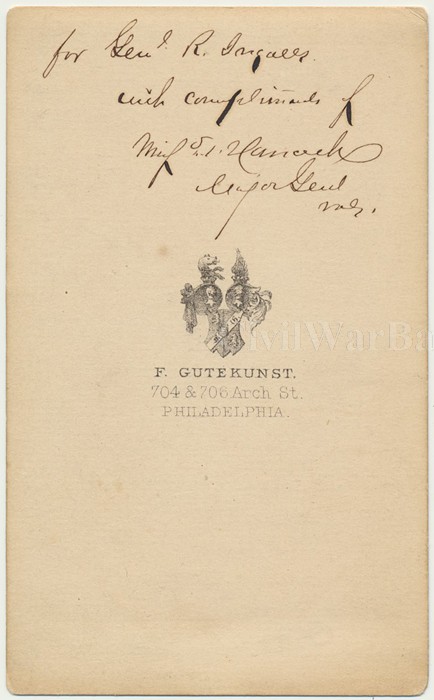 for Genl. R. Ingalls.
with compliments of
Winf. S. Hancock
Major Genl
vols.
F. GUTEKUNST.
704 & 706 Arch St.
PHILADELPHIA.